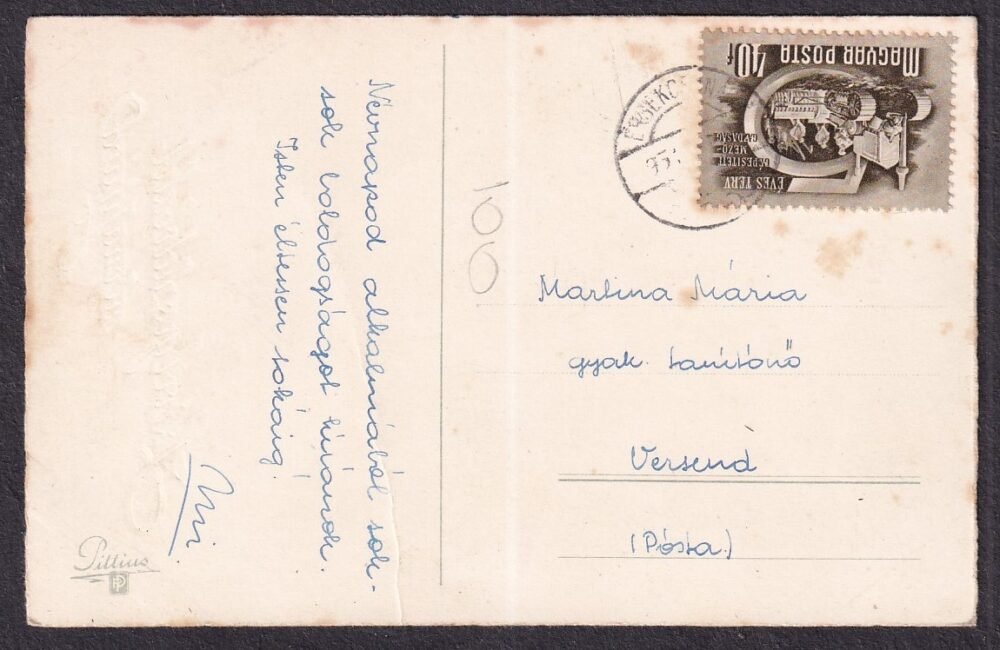 Névnapod alkalmából sok-
sok boldogságot kívánok.
Isten éltessen sokáig!
Pittius
100
MAGYAR POSTA
40f
ÉVES TERV
GÉPESÍTETT
MEZŐ-
GAZDASÁG
Martina Mária
gyak. tanítónő
Versend
(Pósta)